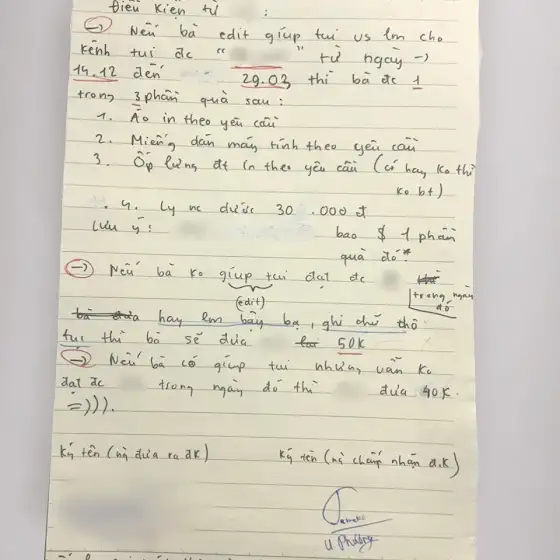 Điều kiện từ :
→ Nếu bà edit giúp tui vs lm cho
kênh tui đc " " từ ngày →
14.12 đến 29.03 thì bà đc 1
trong 3 phần quà sau :
1. Áo in theo yêu cầu
2. Miếng dán máy tính theo yêu cầu
3. Ốp lưng đt in theo yêu cầu (có hay ko thì
ko bt)
4. Ly nc dưới 30.000 đ
Lưu ý : bao $ 1 phần
quà đó*
→ Nếu bà ko giúp tui đạt đc
(edit) trong ngày
đó
hay lm bầy bạ, ghi chữ thô
tục thì bà sẽ đưa 50K
→ Nếu bà có giúp tui nhưng vẫn ko
đạt đc trong ngày đó thì đưa 40K.
=))).
Ký tên (ng đưa ra đk) Ký tên (ng chấp nhận đ.K)
U Phương